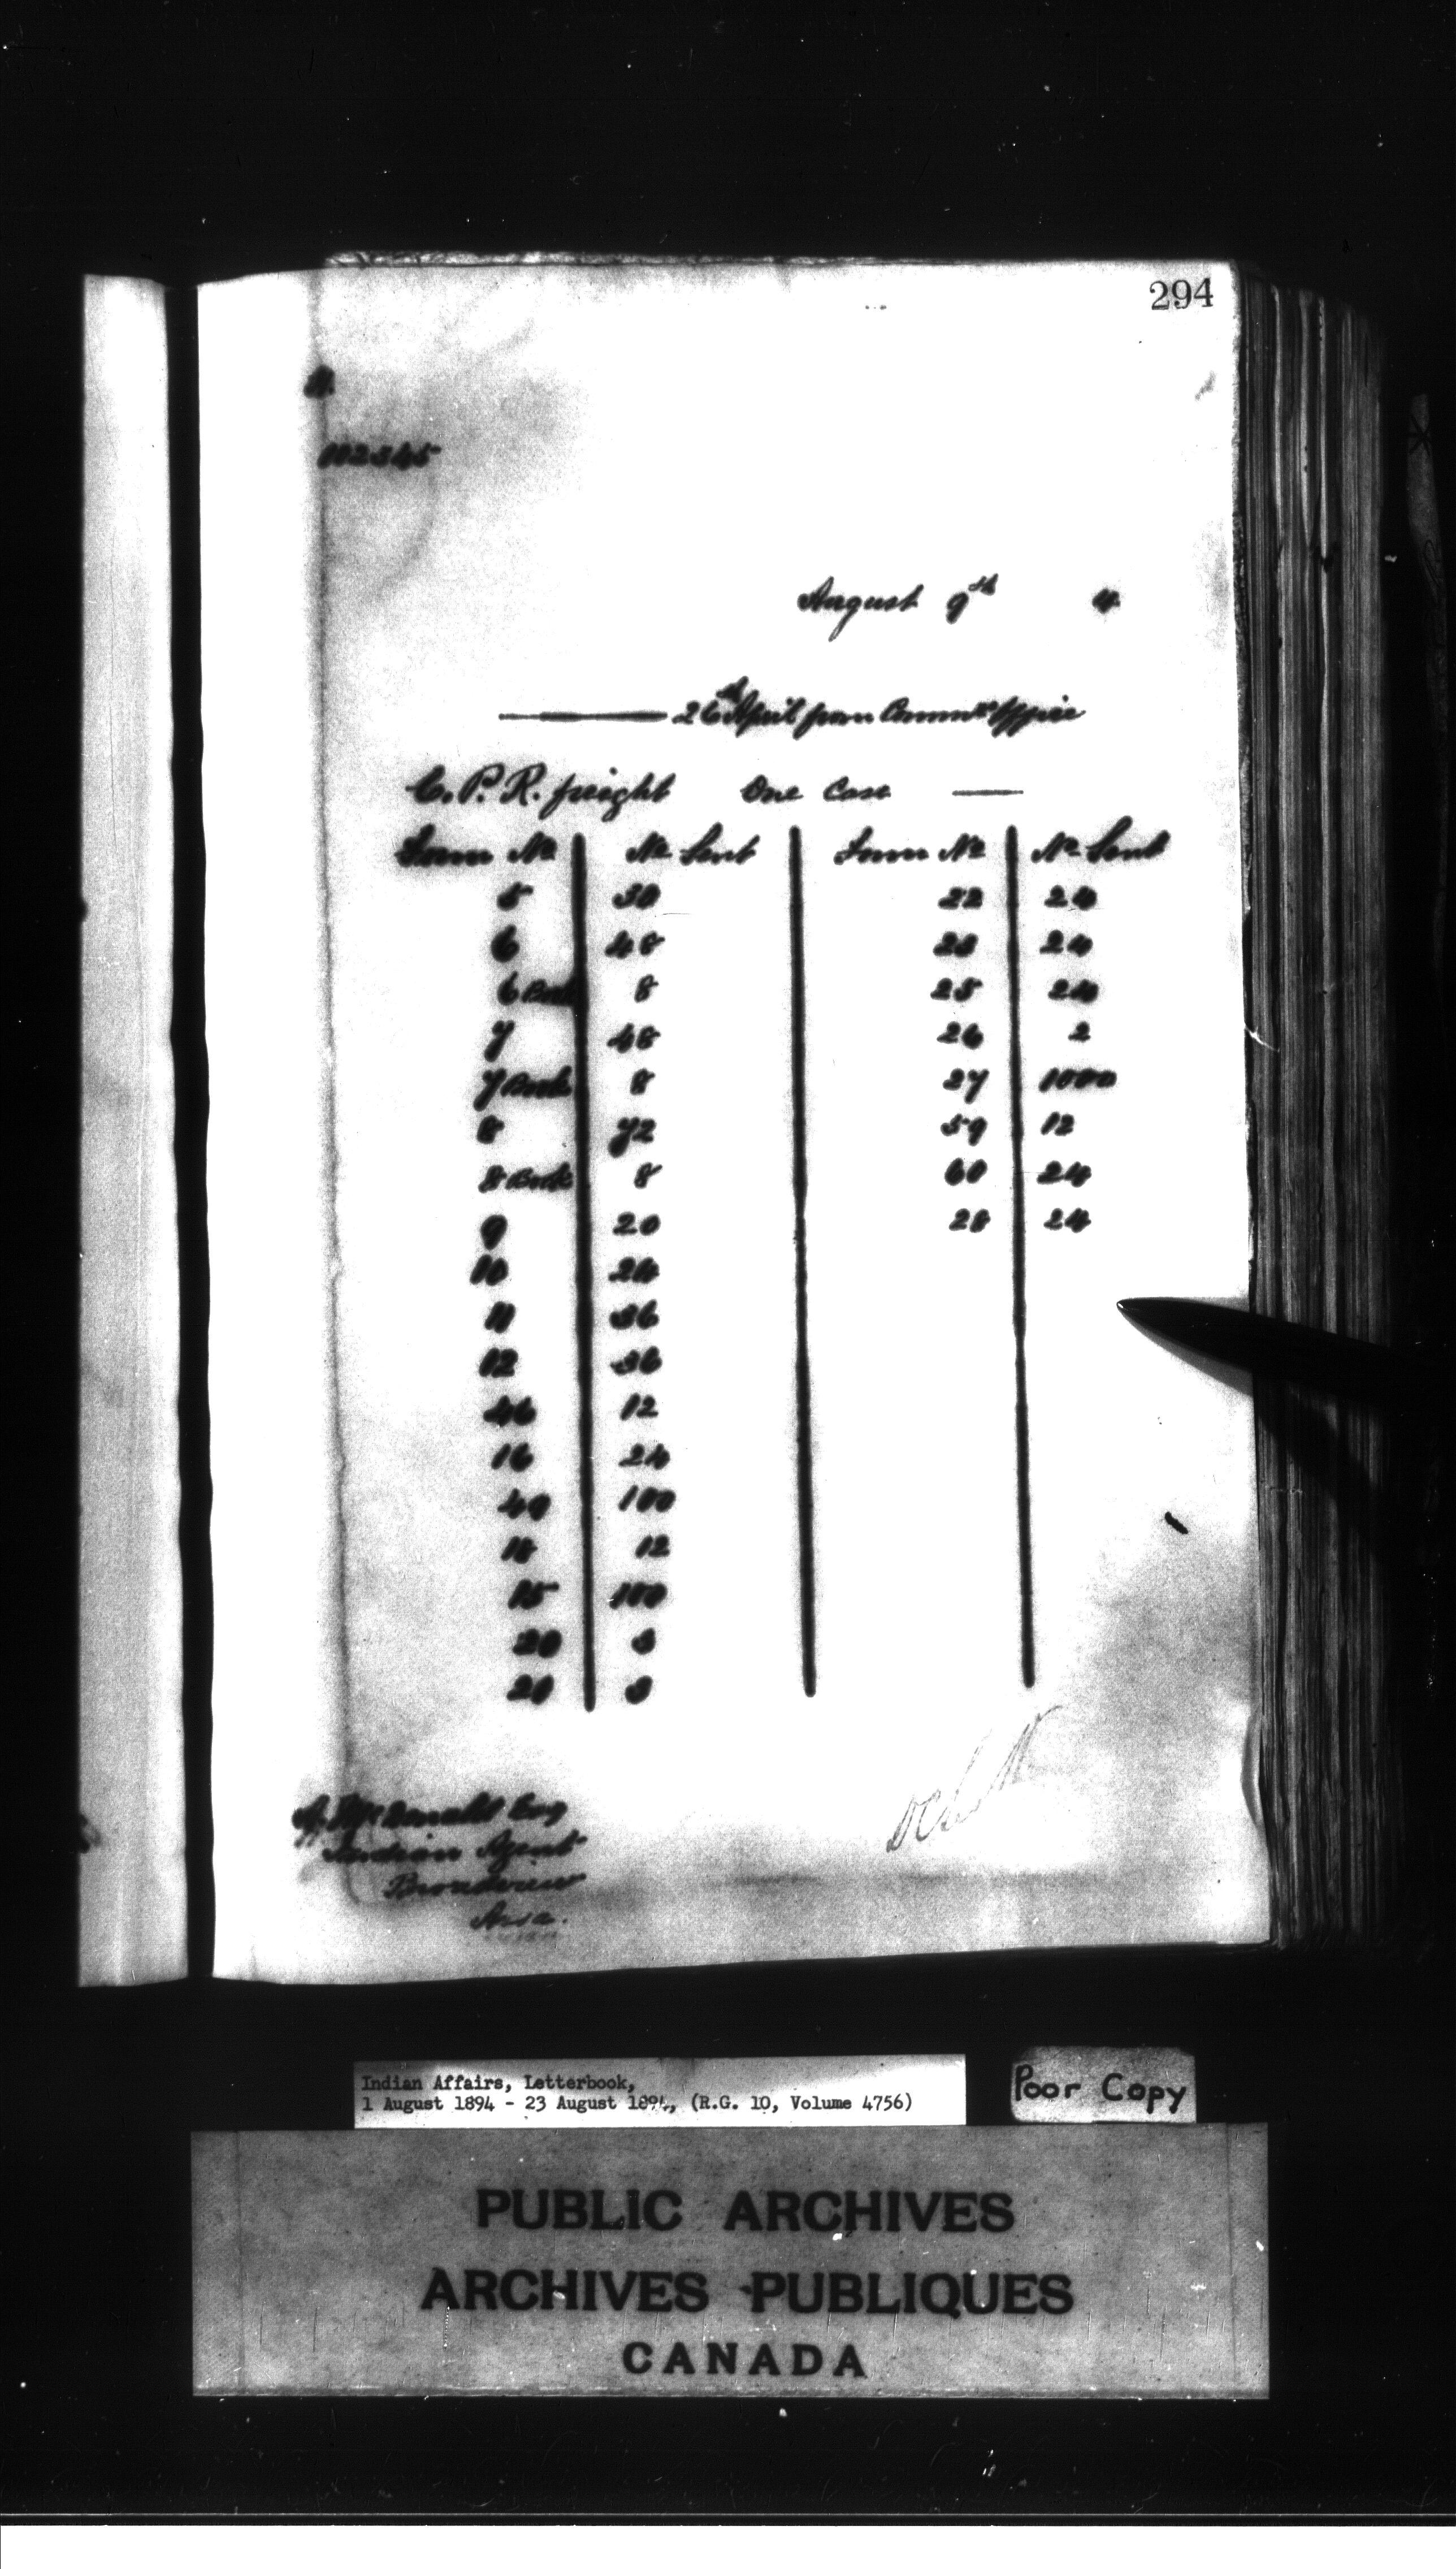 294
112345
August 9th 4
26th April from Commrs Office
C. P. R. freight One Case
Form No No Sent Form No No Sent
5 30 22 24
6 48 23 24
6 Book 8 25 24
7 48 26 2
7 Book 8 27 1000
8 72 59 12
8 Book 8 60 24
9 20 28 24
10 24
11 36
12 36
46 12
16 24
49 100
18 12
15 100
20 3
20 3
A. McDonald Esq
Indian Agent
Broadview
Assa.
Indian Affairs, Letterbook,
1 August 1894 - 23 August 1894, (R.G. 10, Volume 4756)
Poor Copy
PUBLIC ARCHIVES
ARCHIVES PUBLIQUES
CANADA